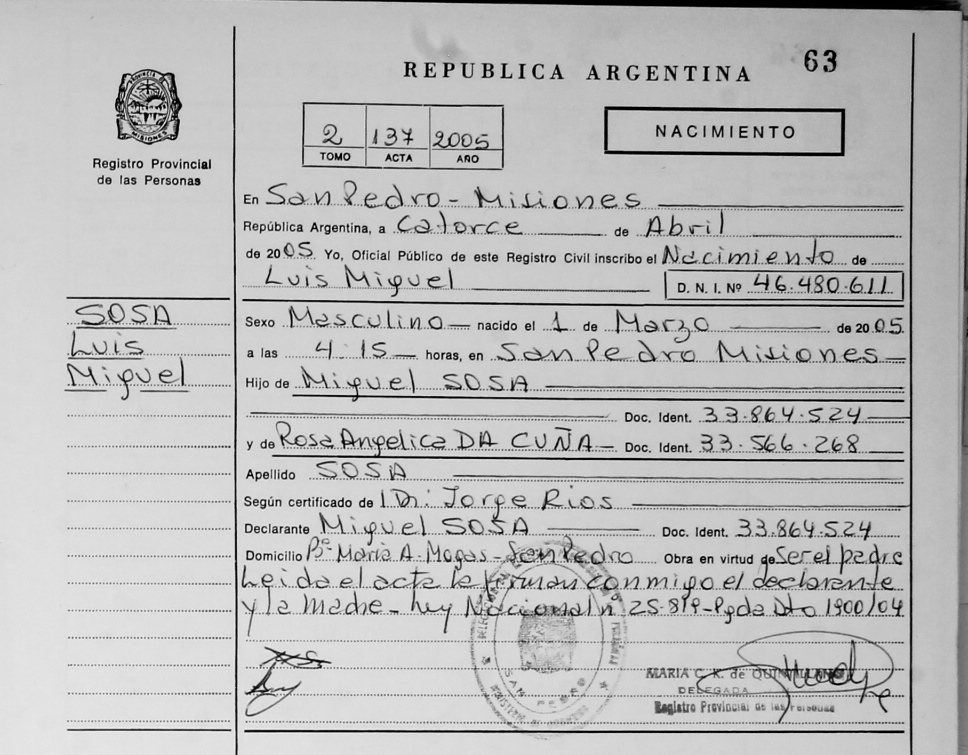 63
REPUBLICA ARGENTINA
PROVINCIA DE MISIONES
Registro Provincial
de las Personas
2 137 2005
TOMO ACTA AÑO
NACIMIENTO
En San Pedro - Misiones
República Argentina, a Catorce de Abril
de 2005. Yo, Oficial Público de este Registro Civil inscribo el Nacimiento de
Luis Miguel D. N. I. Nº 46.480.611
SOSA
Luis
Miguel
Sexo Masculino nacido el 1 de Marzo de 2005
a las 4.15 horas, en San Pedro Misiones
Hijo de Miguel SOSA
Doc. Ident. 33.864.524
y de Rosa Angelica DA CUÑA Doc. Ident. 33.566.268
Apellido SOSA
Según certificado de Dr: Jorge Rios
Declarante Miguel SOSA Doc. Ident. 33.864.524
Domicilio Bº Maria A. Mogas - San Pedro Obra en virtud de Ser el padre
Leida el acta la firman conmigo el declarante
y la madre - Ley Nacional nº 25.819 - Pgda Dto 1900/04
SAN PEDRO
MARIA C. K. de QUINTILLANO
DELEGADA
Registro Provincial de las Personas